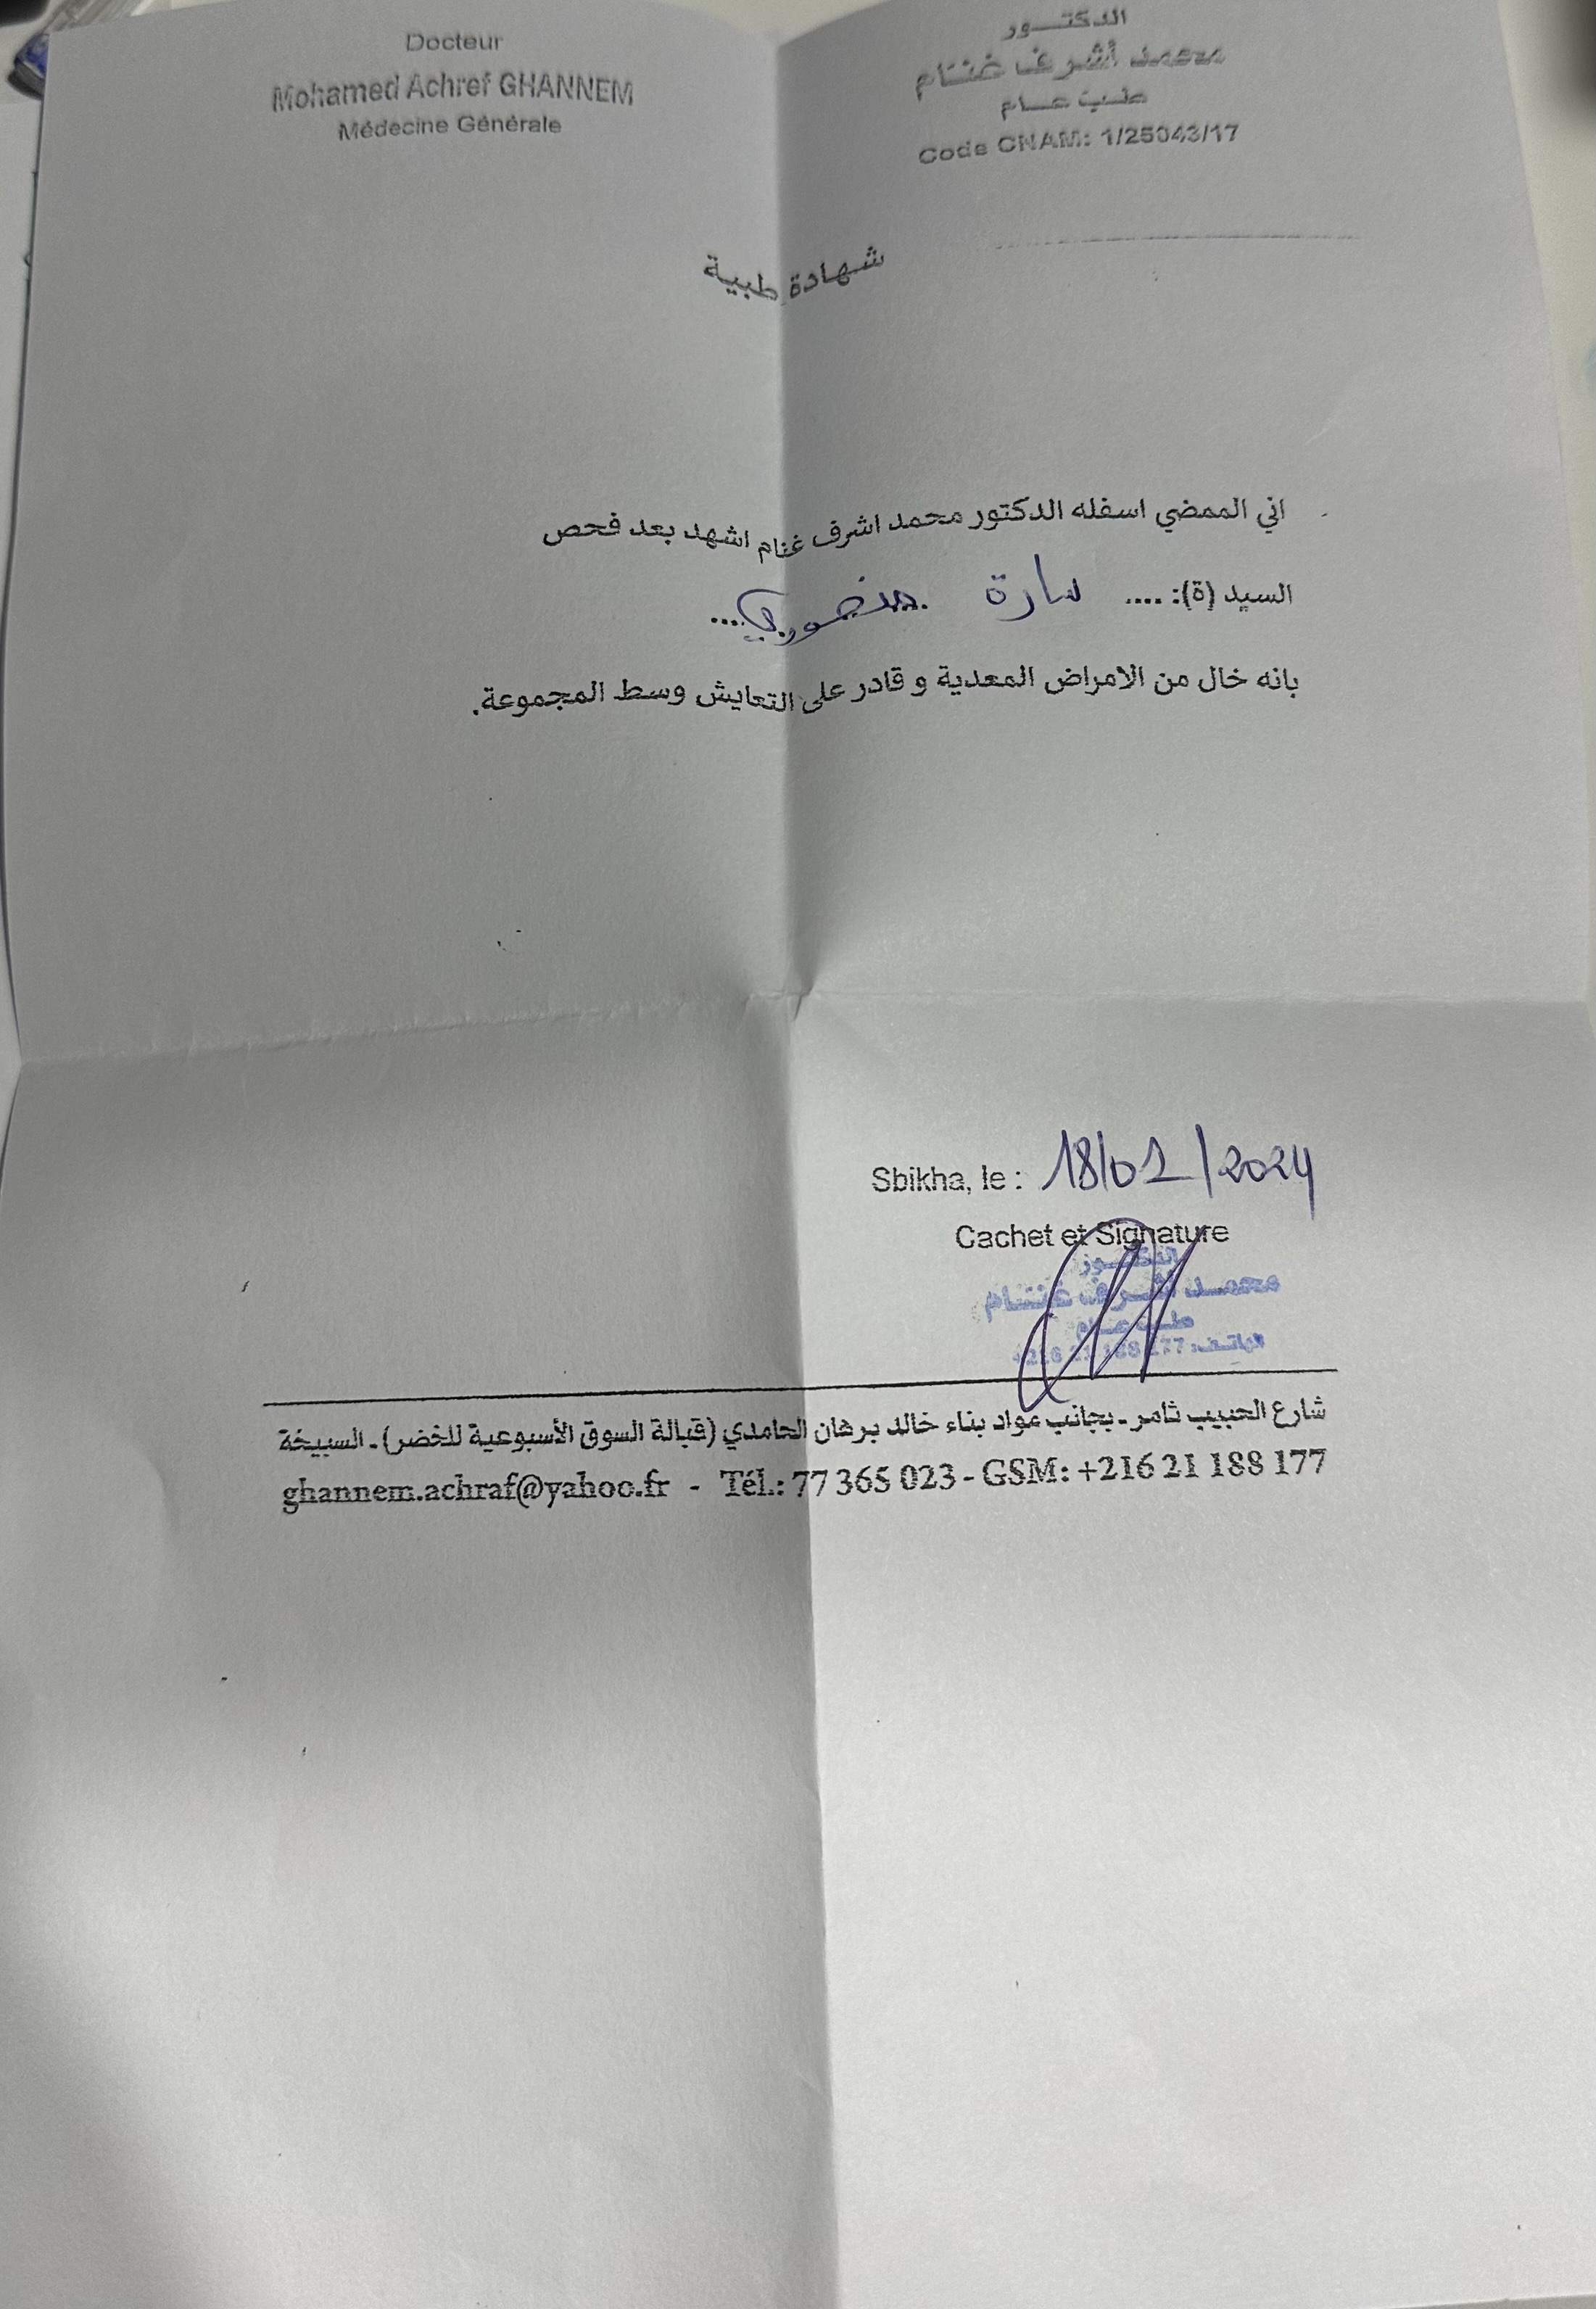 Docteur
Mohamed Achref GHANNEM
Médecine Générale
الدكتـــور
محمد أشرف غنـام
طـب عـــام
Code CNAM: 1/25043/17
شهادة طبية
اني الممضي اسفله الدكتور محمد اشرف غنام اشهد بعد فحص
السيد (ة): .... سارة منصوري ....
بانه خال من الامراض المعدية و قادر على التعايش وسط المجموعة.
Sbikha, le : 18/01/2024
Cachet et Signature
الدكتـــور
محمـد أشـرف غنـام
طـب عـــام
الهاتـف: 177 188 21 216+
شارع الحبيب ثامر - بجانب مواد بناء خالد برهان الحامدي (قبالة السوق الأسبوعية للخضر) - السبيخة
ghannem.achraf@yahoo.fr - Tél.: 77 365 023 - GSM: +216 21 188 177